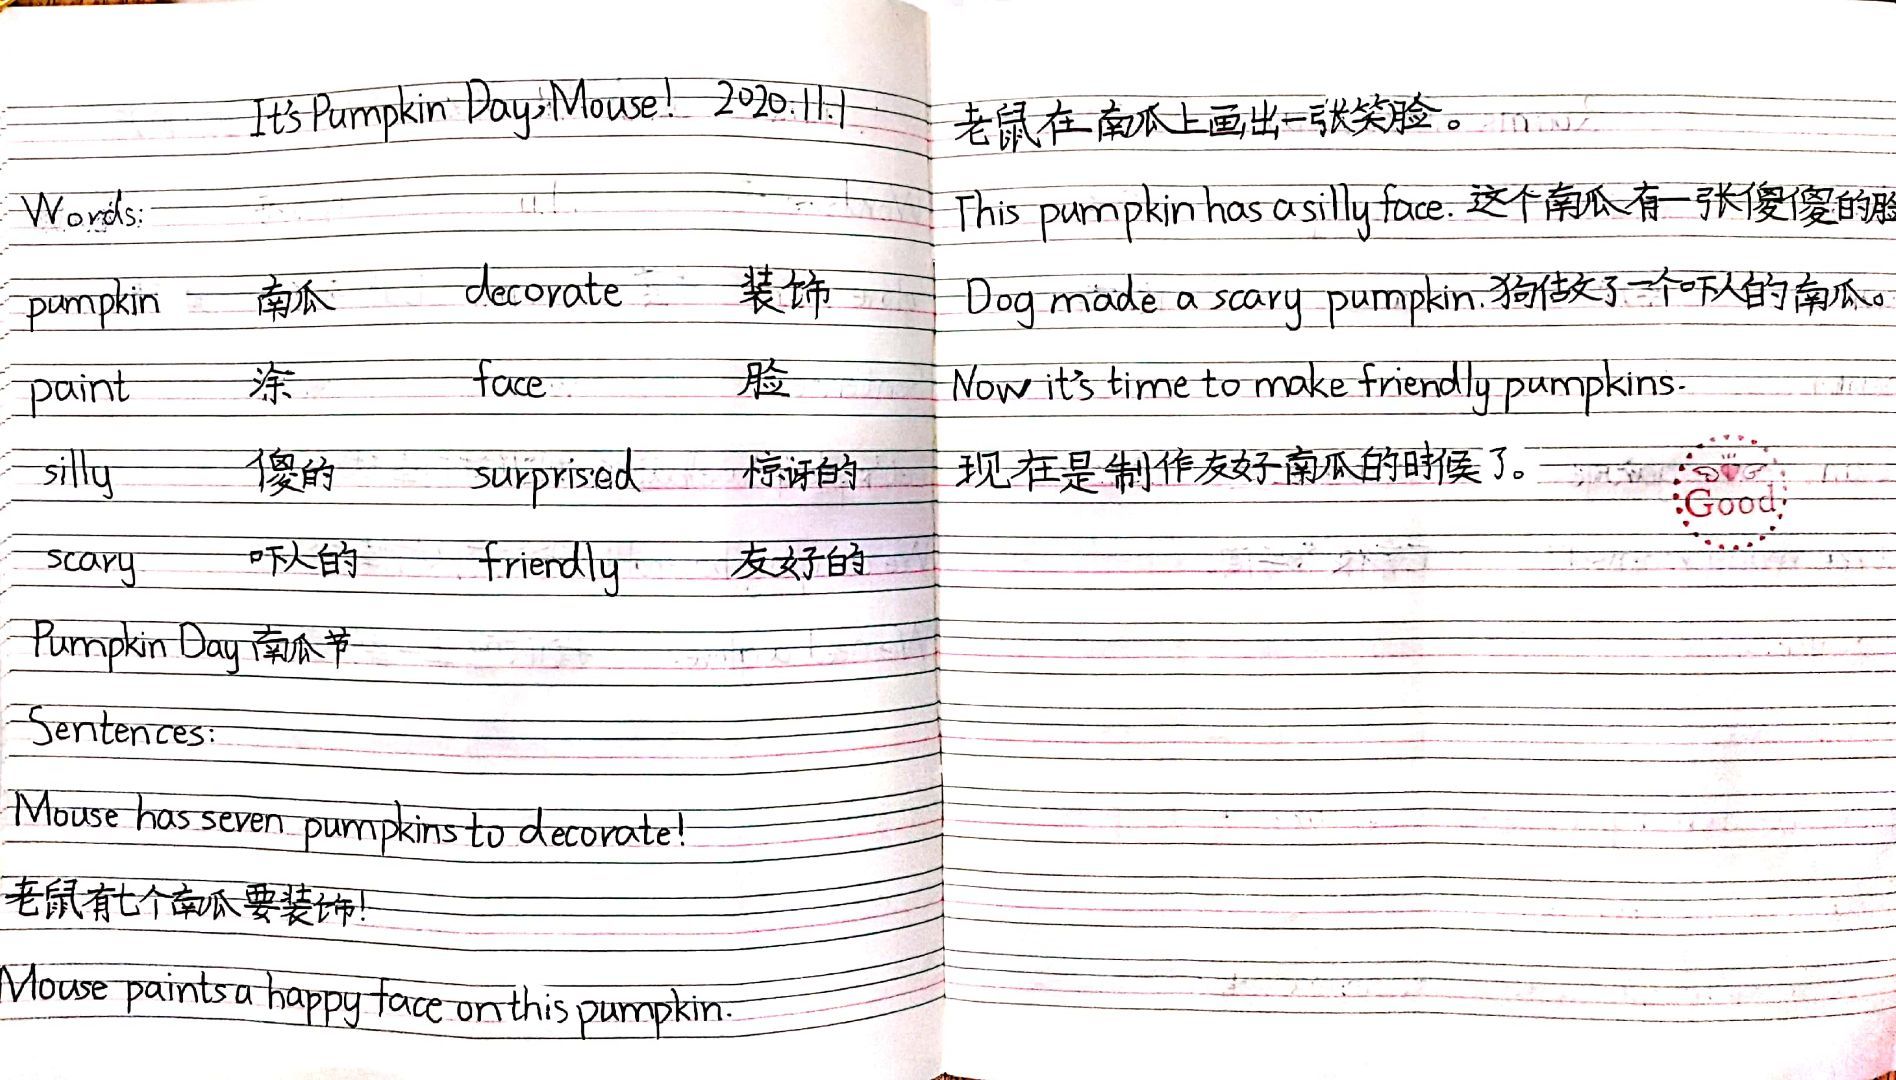 It's Pumpkin Day, Mouse! 2020.11.1
Words:
pumpkin 南瓜 decorate 装饰
paint 涂 face 脸
silly 傻的 surprised 惊讶的
scary 吓人的 friendly 友好的
Pumpkin Day 南瓜节
Sentences:
Mouse has seven pumpkins to decorate!
老鼠有七个南瓜要装饰!
Mouse paints a happy face on this pumpkin.
老鼠在南瓜上画出一张笑脸。
This pumpkin has a silly face. 这个南瓜有一张傻傻的脸
Dog made a scary pumpkin. 狗做了一个吓人的南瓜。
Now it's time to make friendly pumpkins.
现在是制作友好南瓜的时候了。
Good